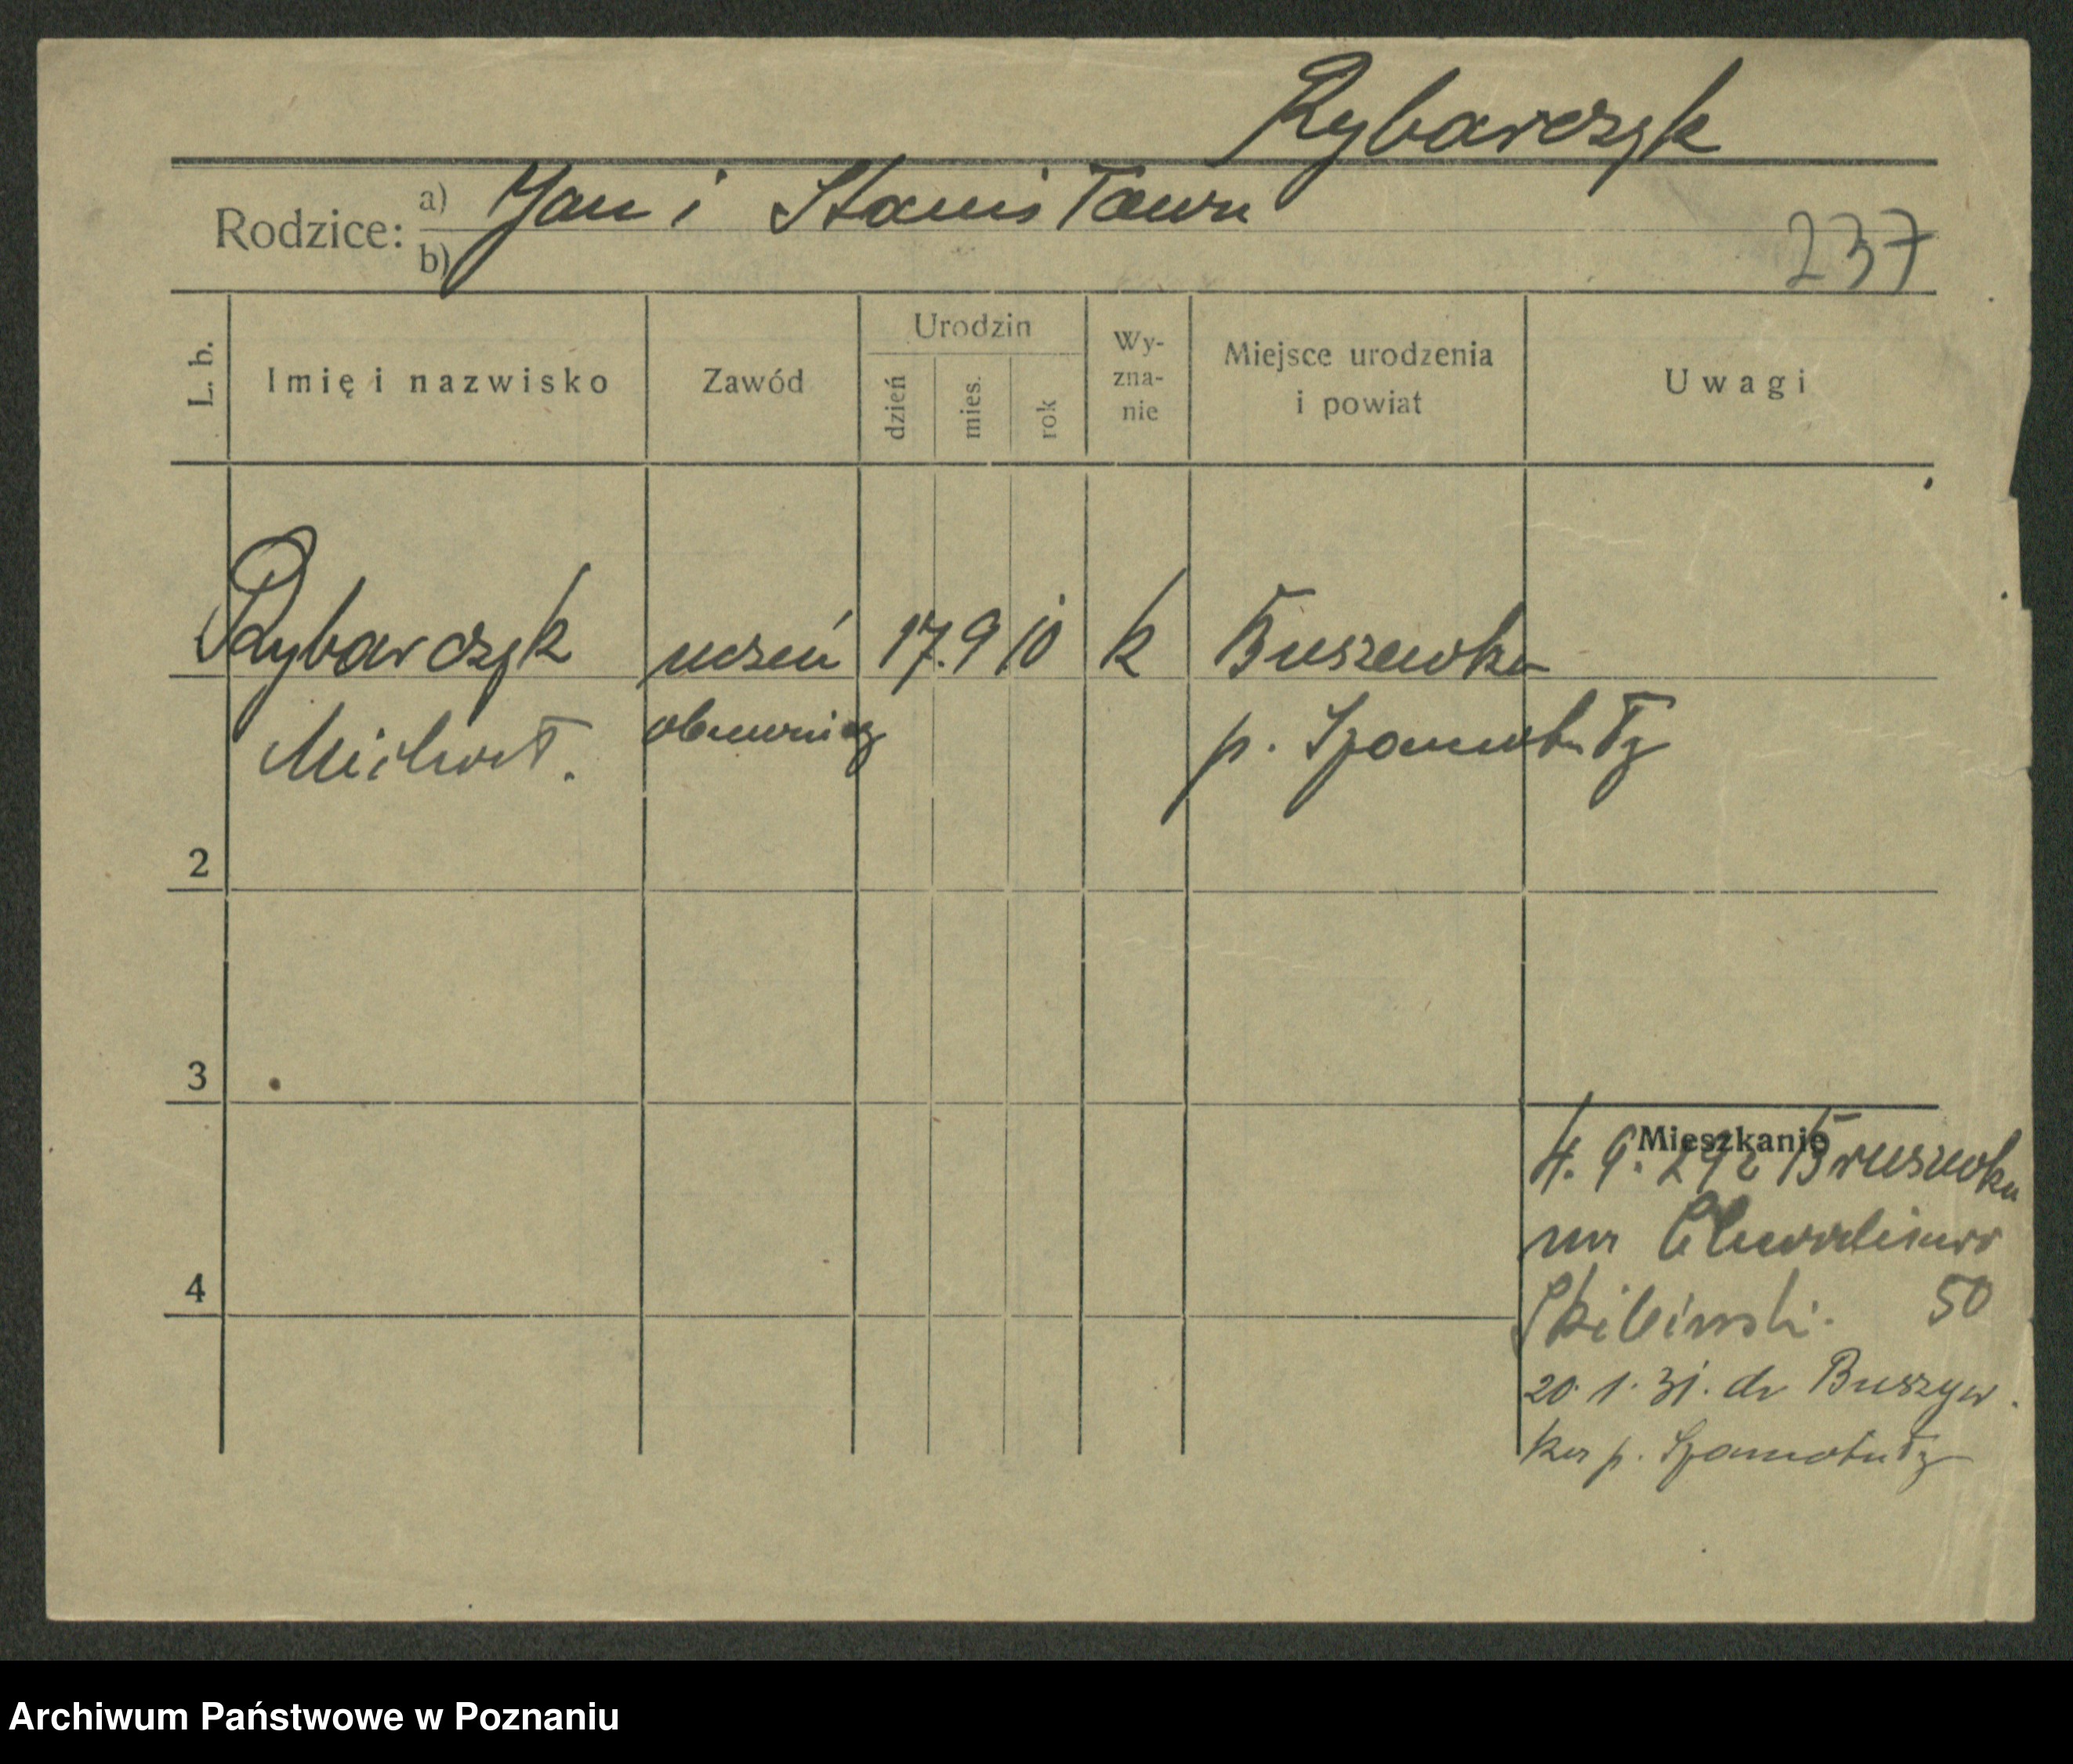 Rybarczyk
Rodzice: a) Jan i Stanisława
b)
237
L. b.
Imię i nazwisko
Zawód
Urodzin
dzień
mies.
rok
Wy-
zna-
nie
Miejsce urodzenia
i powiat
Uwagi
Rybarczyk uczeń 17. 9 10 k Buszewka
Michał. obuwniczy p. Szamotuły
2
3
4
Mieszkanie
4. 9. 29 z Bruszewka
na
Skibiński. 50
20. 1. 31. do Buszyw
ka p. Szamotuły
Archiwum Państwowe w Poznaniu